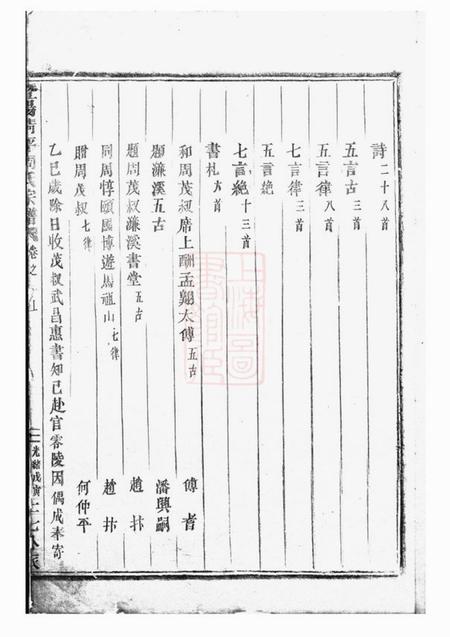 詩二十八首
五言古三首
五言律八首
七言律三首
五言絕
七言絕十三首
書札六首
和周茂叔席上酬孟翱太傅五古 傅耆
題濂溪五古 潘興嗣
題周茂叔濂溪書堂五古 趙抃
同周惇頤國博遊馬祖山七律 趙抃
贈周茂叔七律 何仲平
乙巳歲除日收茂叔武昌惠書知已赴官零陵因偶成奉寄
周氏宗譜 卷之
光緒戊寅
上海圖書館藏